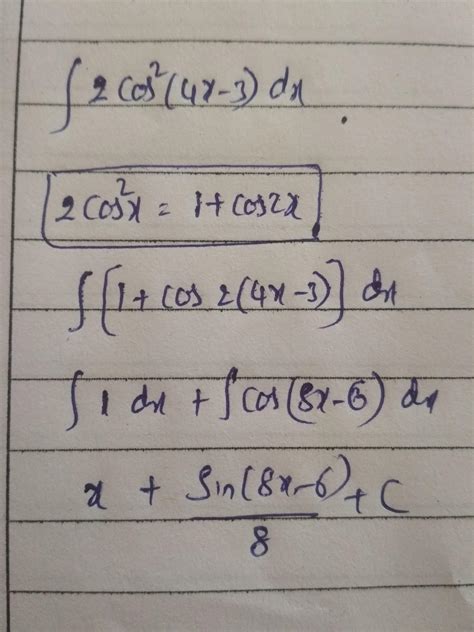 ∫ 2 cos²(4x-3) dx
2 cos²x = 1 + cos2x
∫ [1 + cos 2(4x-3)] dx
∫ 1 dx + ∫ cos(8x-6) dx
x + sin(8x-6)/8 + C